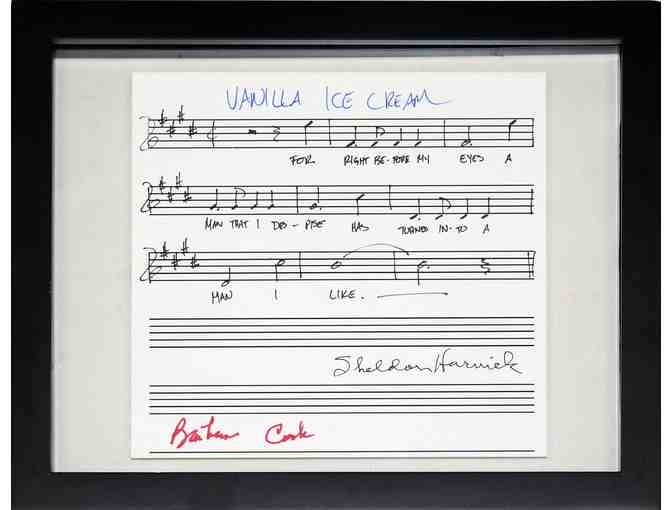 VANILLA ICE CREAM
FOR RIGHT BE-FORE MY EYES A
MAN THAT I DES-PISE HAS TURNED IN-TO A
MAN I LIKE.
Sheldon Harnick
Barbara Cook